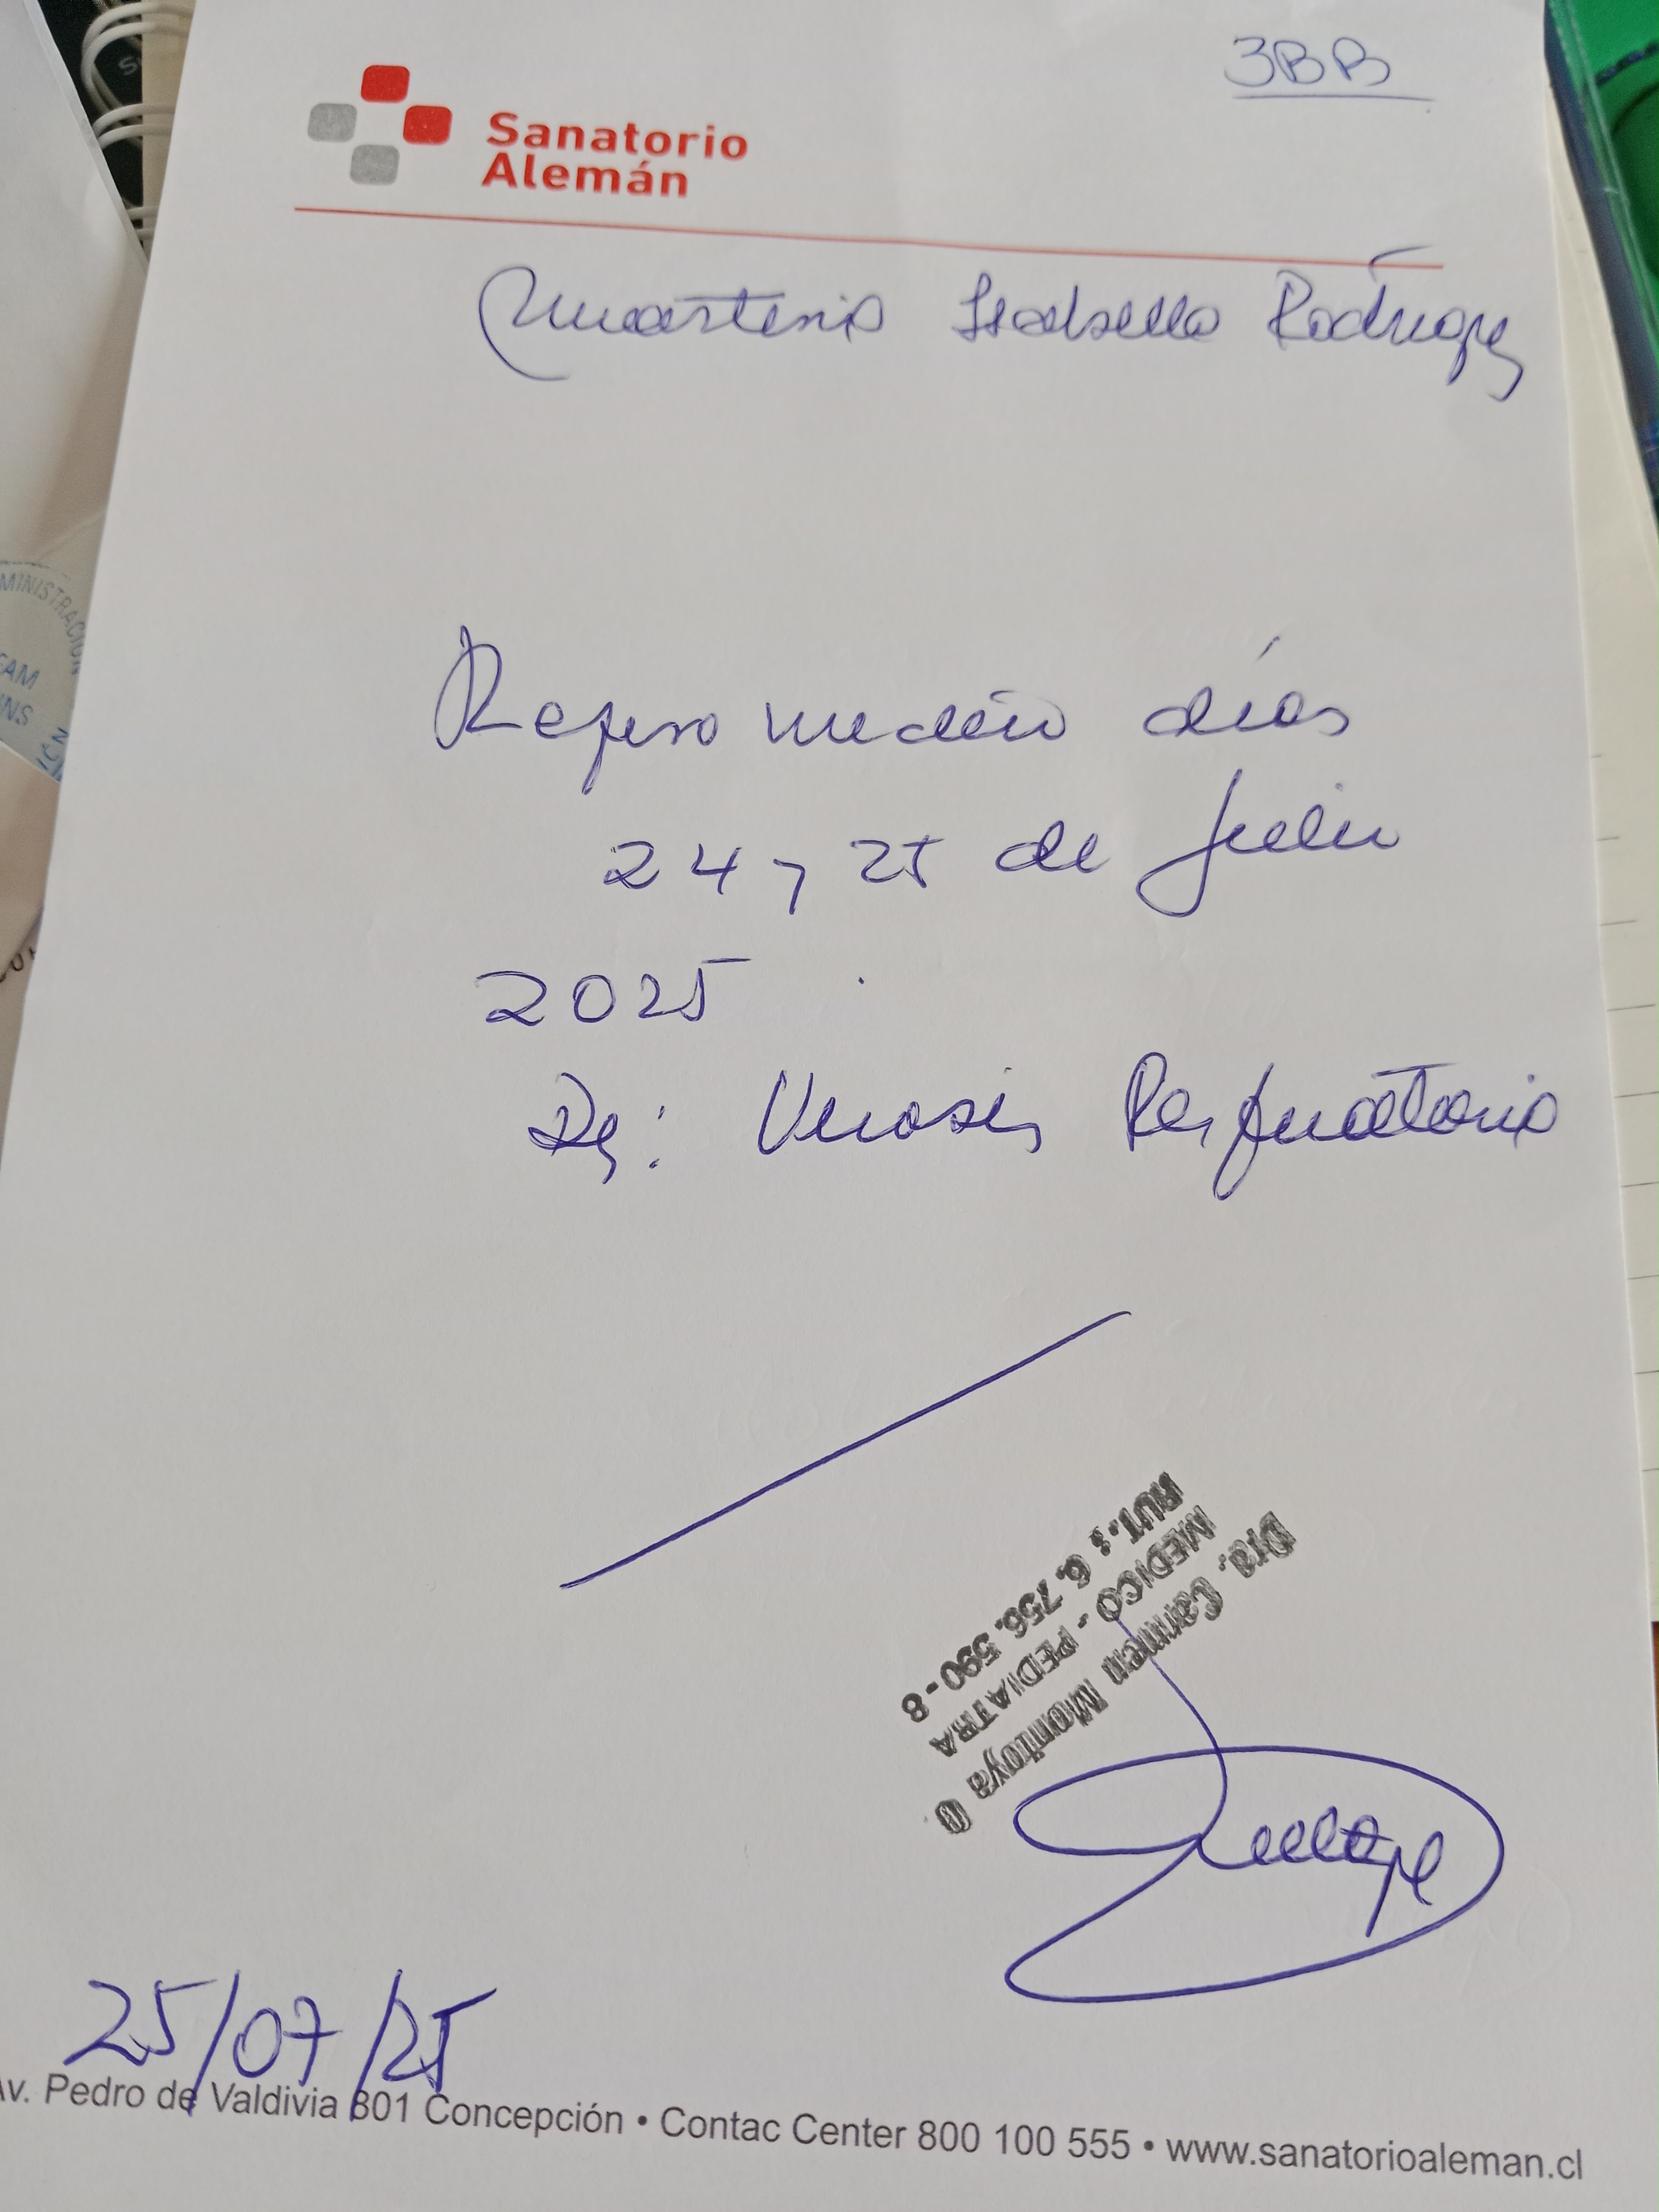 3BB
Sanatorio
Alemán
Isabella Rodríguez
Reposo médico días
24 y 25 de Julio
2025
Dg: Virosis Respiratoria
Dra. Carmen Montoya
MEDICO - PEDIATRA
RUT.: 6.756.590-8
25/07/25
Av. Pedro de Valdivia 801 Concepción • Contac Center 800 100 555 • www.sanatorioaleman.cl
MINISTRACIÓN